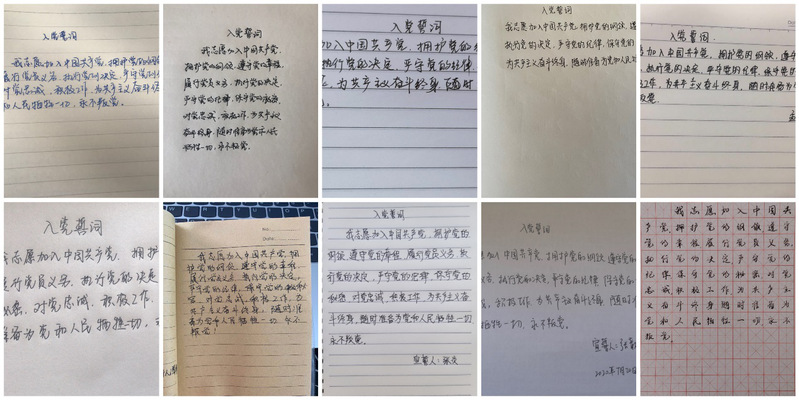 入党誓词
我志愿加入中国共产党,拥护党的纲
履行党员义务,执行党的决定,严守党的纪
对党忠诚,积极工作,为共产主义奋斗终
和人民牺牲一切,永不叛党。
入党誓词
我志愿加入中国共产党,
拥护党的纲领,遵守党的章程,
履行党员义务,执行党的决定,
严守党的纪律,保守党的秘密,
对党忠诚,积极工作,为共产主义
奋斗终身,随时准备为党和人民
牺牲一切,永不叛党。
入党誓词
加入中国共产党,拥护党的
执行党的决定,严守党的纪律
,为共产主义奋斗终身,随时
入党誓词
我志愿加入中国共产党,拥护党的纲领,遵守党
执行党的决定,严守党的纪律,保守党
为共产主义奋斗终身,随时准备为党和人民
入党誓词
加入中国共产党,拥护党的纲领,遵
,执行党的决定,严守党的纪律,保守党
工作,为共产主义奋斗终身,随时准备为
叛党。
入党誓词
我志愿加入中国共产党,拥护
行党员义务,执行党的决定
对党忠诚,积极工作,
准备为党和人民牺牲一切,
我志愿加入中国共产党,拥
护党的纲领,遵守党的章程,
履行党员义务,执行党的决定,
严守党的纪律,保守党的秘
密,对党忠诚,积极工作,为
共产主义奋斗终身,随时准
备为党和人民牺牲一切,永不
叛党!
入党誓词
我志愿加入中国共产党,拥护党的
纲领,遵守党的章程,履行党员义务,执
行党的决定,严守党的纪律,保守党的
秘密,对党忠诚,积极工作,为共产主义奋
斗终身,随时准备为党和人民牺牲一切
永不叛党。
宣誓人:张
入党誓词
加入中国共产党,拥护党的纲领,遵守党的
义务,执行党的决定,严守党的纪律,保守党的
,积极工作,为共产主义奋斗终身,随时
牺牲一切,永不叛党。
宣誓人:张
2022年7月
我志愿加入中国共
产党,拥护党的纲领,遵守
党的章程,履行党员义务,
执行党的决定,严守党的
纪律,保守党的秘密,对党
忠诚,积极工作,为共产主
义奋斗终身,随时准备为
党和人民牺牲一切,永不
叛党。